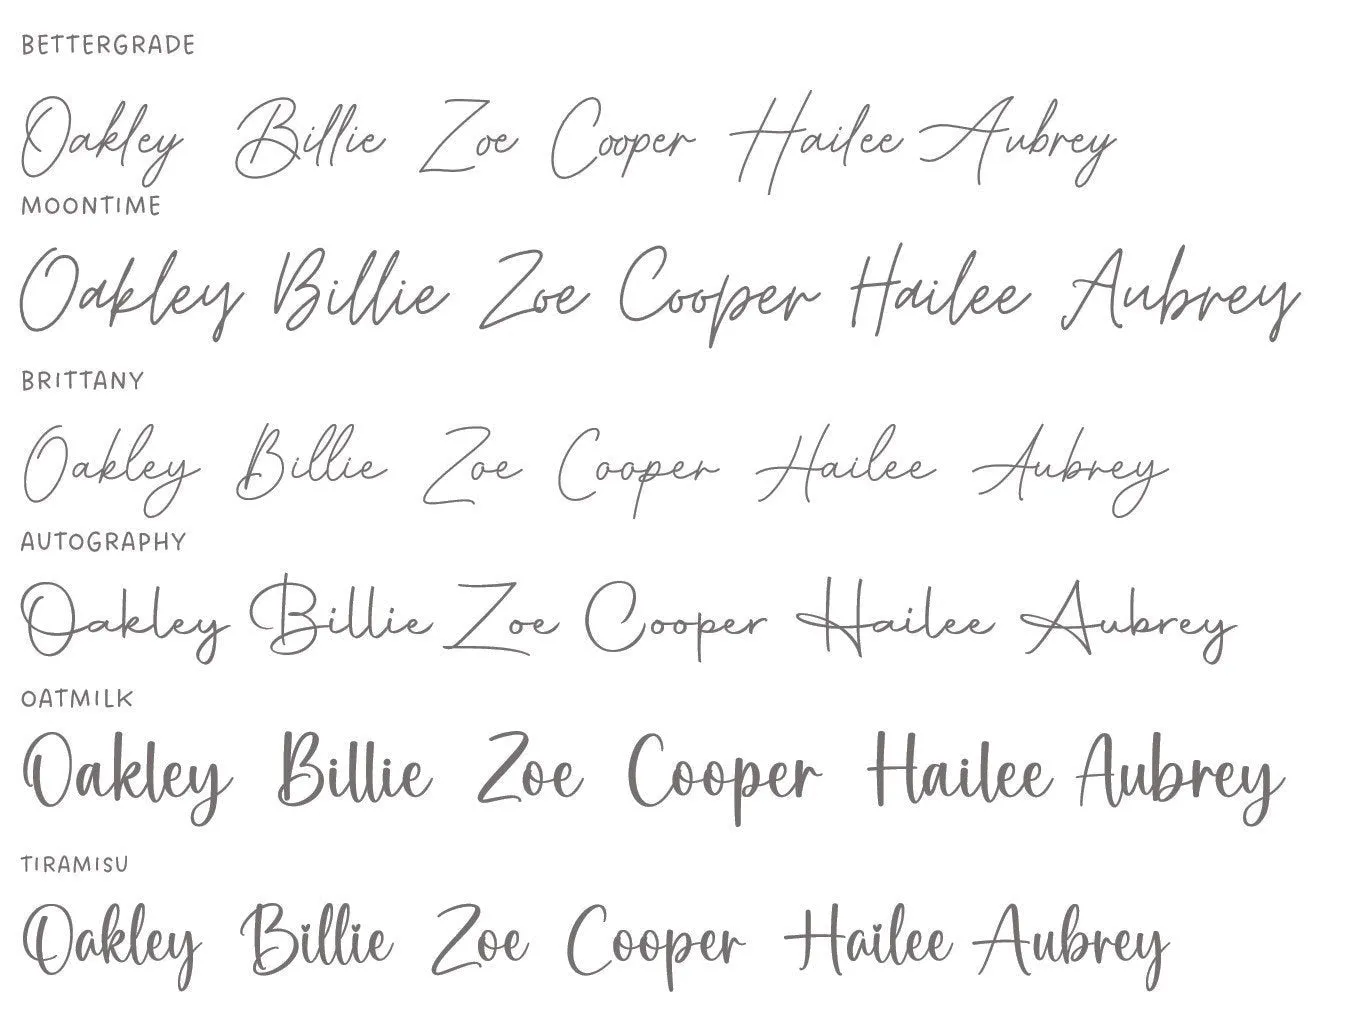 BETTERGRADE
Oakley Billie Zoe Cooper Hailee Aubrey
MOONTIME
Oakley Billie Zoe Cooper Hailee Aubrey
BRITTANY
Oakley Billie Zoe Cooper Hailee Aubrey
AUTOGRAPHY
Oakley Billie Zoe Cooper Hailee Aubrey
OATMILK
Oakley Billie Zoe Cooper Hailee Aubrey
TIRAMISU
Oakley Billie Zoe Cooper Hailee Aubrey